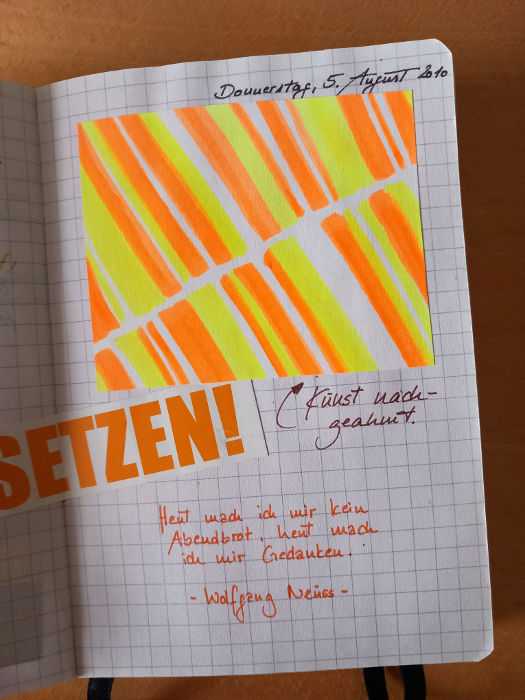 Donnerstag, 5. August 2010
SETZEN!
Kunst nach-
geahmt.
Heut mach ich mir kein
Abendbrot, heut mach
ich mir Gedanken.
- Wolfgang Neuss -